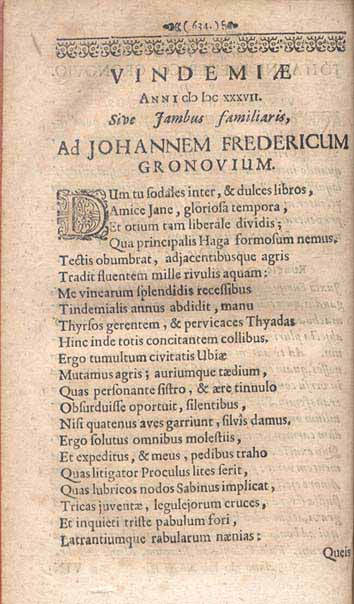 ( 634. )
VINDEMIÆ
ANNI cIɔ Iɔc XXXVII.
Sive Jambus familiaris,
Ad JOHANNEM FREDERICUM
GRONOVIUM.
DUm tu sodales inter, & dulces libros,
Amice Jane, gloriosa tempora,
Et otium tam liberale dividis;
Qua principalis Haga formosum nemus
Tectis obumbrat, adjacentibusque agris
Tradit fluentem mille rivulis aquam:
Me vinearum splendidis recessibus
Tindemialis annus abdidit, manu
Thyrsos gerentem, & pervicaces Thyadas
Hinc inde totis concitantem collibus.
Ergo tumultum civitatis Ubiæ
Mutamus agris; auriumque tædium,
Quas personante sistro, & ære tinnulo
Obsurduisse oportuit, silentibus,
Nisi quatenus aves garriunt, silvis damus.
Ergo solutus omnibus molestiis,
Et expeditus, & meus, pedibus traho
Quas litigator Proculus lites serit,
Quas lubricos nodos Sabinus implicat,
Tricas juventæ, legulejorum cruces,
Et inquieti triste pabulum fori,
Latrantiumque rabularum nænias:
Queis